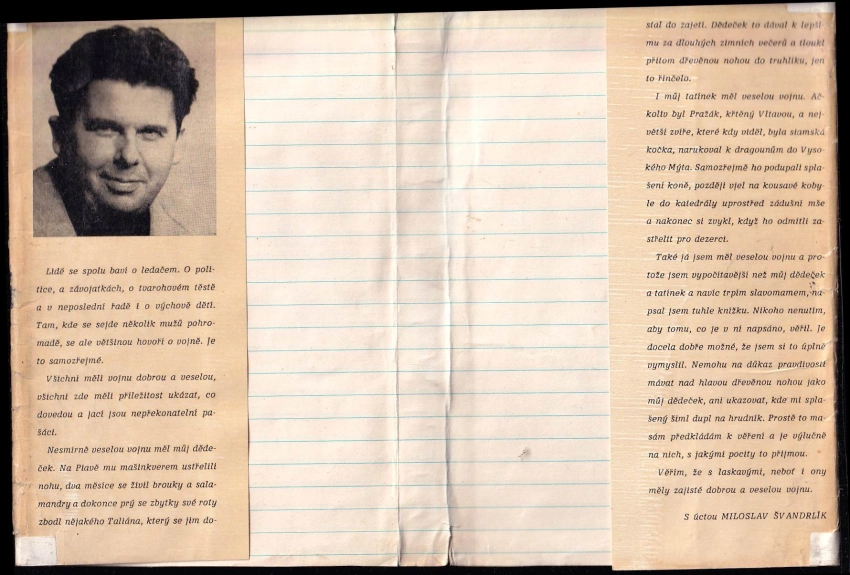 Lidé se spolu baví o ledačem. O poli-
tice, a závojatkách, o tvarohovém těstě
a v neposlední řadě i o výchově dětí.
Tam, kde se sejde několik mužů pohro-
madě, se ale většinou hovoří o vojně. Je
to samozřejmé.
Všichni měli vojnu dobrou a veselou,
všichni zde měli příležitost ukázat, co
dovedou a jací jsou nepřekonatelní pa-
šáci.
Nesmírně veselou vojnu měl můj děde-
ček. Na Piavě mu mašinkverem ustřelili
nohu, dva měsíce se živil brouky a sala-
mandry a dokonce prý se zbytky své roty
zbodl nějakého Taliána, který se jim do-
stal do zajetí. Dědeček to dával k lepší-
mu za dlouhých zimních večerů a tloukl
přitom dřevěnou nohou do truhlíku, jen
to řinčelo.
I můj tatínek měl veselou vojnu. Ač-
koliv byl Pražák, křtěný Vltavou, a nej-
větší zvíře, které kdy viděl, byla siamská
kočka, narukoval k dragounům do Vyso-
kého Mýta. Samozřejmě ho podupali spla-
šení koně, později vjel na kousavé koby-
le do katedrály uprostřed zádušní mše
a nakonec si zvykl, když ho odmítli za-
střelit pro dezerci.
Také já jsem měl veselou vojnu a pro-
tože jsem vypočítavější než můj dědeček
a tatínek a navíc trpím slavomamem, na-
psal jsem tuhle knížku. Nikoho nenutím,
aby tomu, co je v ní napsáno, věřil. Je
docela dobře možné, že jsem si to úplně
vymyslil. Nemohu na důkaz pravdivosti
mávat nad hlavou dřevěnou nohou jako
můj dědeček, ani ukazovat, kde mi spla-
šený šiml dupl na hrudník. Prostě to ma-
sám předkládám k věření a je výlučně
na nich, s jakými pocity to přijmou.
Věřím, že s laskavými, neboť i ony
měly zajisté dobrou a veselou vojnu.
S úctou MILOSLAV ŠVANDRLÍK